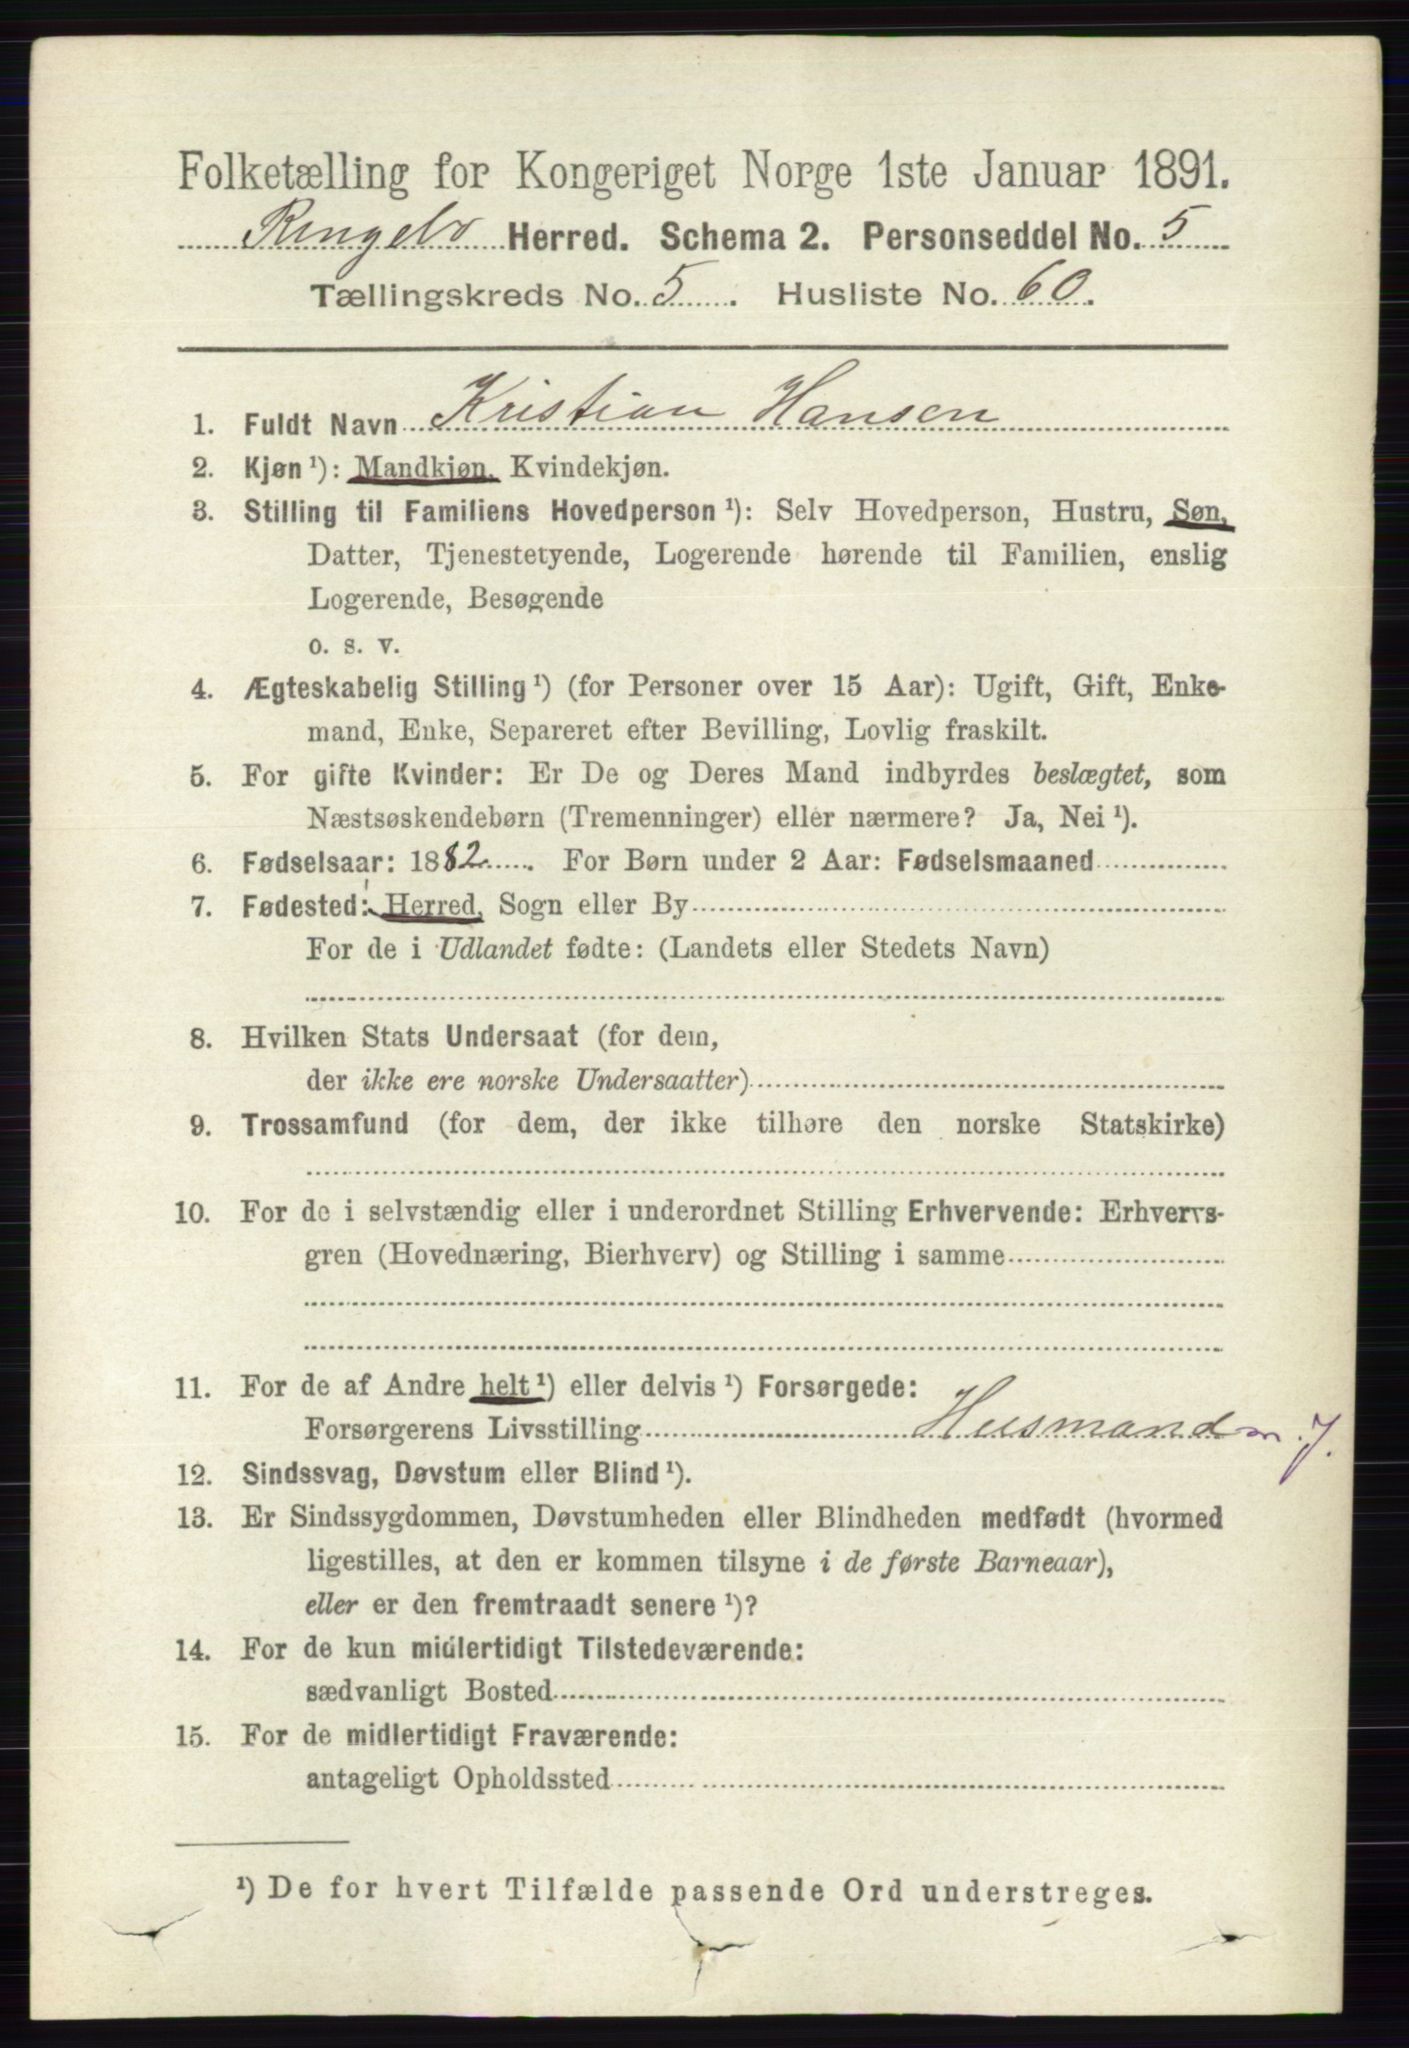 Folketælling for Kongeriget Norge 1ste Januar 1891.
Ringebo Herred. Schema 2. Personseddel No. 5
Tællingskreds No. 5. Husliste No. 60.
1. Fuldt Navn Kristian Hansen
2. Kjøn ¹): Mandkjøn, Kvindekjøn.
3. Stilling til Familiens Hovedperson ¹): Selv Hovedperson, Hustru, Søn,
Datter, Tjenestetyende, Logerende hørende til Familien, enslig
Logerende, Besøgende
o. s. v.
4. Ægteskabelig Stilling ¹) (for Personer over 15 Aar): Ugift, Gift, Enke-
mand, Enke, Separeret efter Bevilling, Lovlig fraskilt.
5. For gifte Kvinder: Er De og Deres Mand indbyrdes beslægtet, som
Næstsøskendebørn (Tremenninger) eller nærmere? Ja, Nei ¹).
6. Fødselsaar: 1882. For Børn under 2 Aar: Fødselsmaaned
7. Fødested: Herred, Sogn eller By
For de i Udlandet fødte: (Landets eller Stedets Navn)
8. Hvilken Stats Undersaat (for dem,
der ikke ere norske Undersaatter)
9. Trossamfund (for dem, der ikke tilhøre den norske Statskirke)
10. For de i selvstændig eller i underordnet Stilling Erhvervende: Erhvervs-
gren (Hovednæring, Bierhverv) og Stilling i samme
11. For de af Andre helt ¹) eller delvis ¹) Forsørgede:
Forsørgerens Livsstilling Husmand m. J.
12. Sindssvag, Døvstum eller Blind ¹).
13. Er Sindssygdommen, Døvstumheden eller Blindheden medfødt (hvormed
ligestilles, at den er kommen tilsyne i de første Barneaar),
eller er den fremtraadt senere ¹)?
14. For de kun midlertidigt Tilstedeværende:
sædvanligt Bosted
15. For de midlertidigt Fraværende:
antageligt Opholdssted
¹) De for hvert Tilfælde passende Ord understreges.